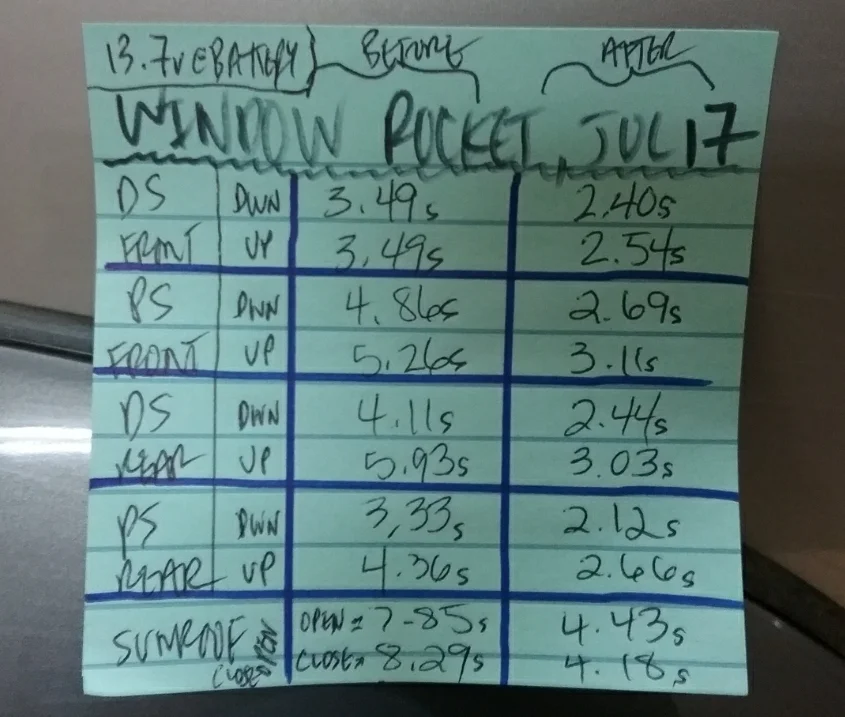 13.7V @ BATTERY} BEFORE AFTER
WINDOW ROCKET, JUL 17
DS DWN 3.49s 2.40s
FRONT UP 3.49s 2.54s
PS DWN 4.86s 2.69s
FRONT UP 5.26s 3.11s
DS DWN 4.11s 2.44s
REAR UP 5.93s 3.03s
PS DWN 3,33s 2.12s
REAR UP 4.36s 2.66s
SUNROOF OPEN OPEN = 7.85s 4.43s
CLOSE CLOSE = 8.29s 4.18s